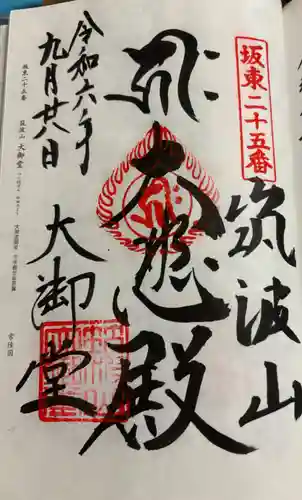 坂東二十五番
筑波山
大悲殿
大御堂
令和六年
九月廿八日
坂東二十五番
筑波山 大御堂
常陸国